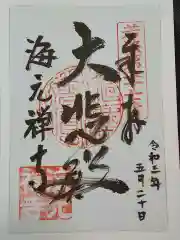 奉拝
令和三年
五月二十日
大悲殿
海元禅寺